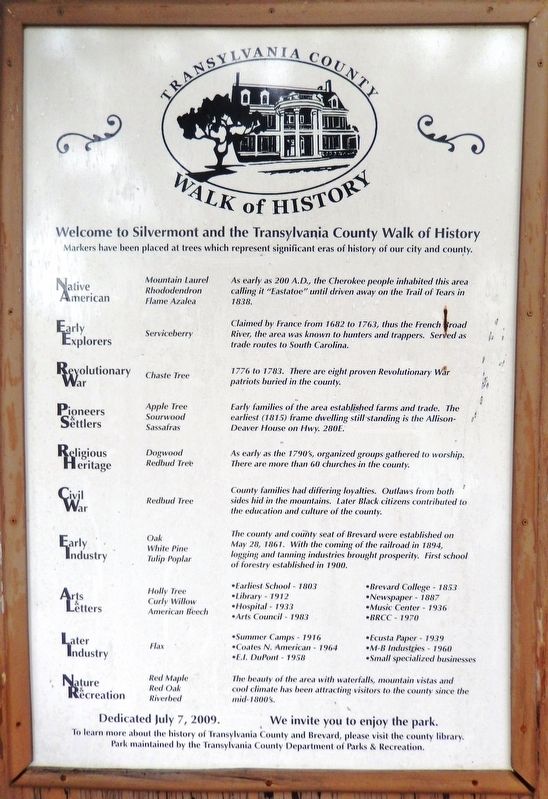 TRANSYLVANIA COUNTY
WALK of HISTORY
Welcome to Silvermont and the Transylvania County Walk of History
Markers have been placed at trees which represent significant eras of history of our city and county.
Native
American
Mountain Laurel
Rhododendron
Flame Azalea
As early as 200 A.D., the Cherokee people inhabited this area
calling it "Eastatoe" until driven away on the Trail of Tears in
1838.
Early
Explorers
Serviceberry
Claimed by France from 1682 to 1763, thus the French Broad
River, the area was known to hunters and trappers. Served as
trade routes to South Carolina.
Revolutionary
War
Chaste Tree
1776 to 1783. There are eight proven Revolutionary War
patriots buried in the county.
Pioneers
&
Settlers
Apple Tree
Sourwood
Sassafras
Early families of the area established farms and trade. The
earliest (1815) frame dwelling still standing is the Allison-
Deaver House on Hwy. 280E.
Religious
Heritage
Dogwood
Redbud Tree
As early as the 1790's, organized groups gathered to worship.
There are more than 60 churches in the county.
Civil
War
Redbud Tree
County families had differing loyalties. Outlaws from both
sides hid in the mountains. Later Black citizens contributed to
the education and culture of the county.
Early
Industry
Oak
White Pine
Tulip Poplar
The county and county seat of Brevard were established on
May 28, 1861. With the coming of the railroad in 1894,
logging and tanning industries brought prosperity. First school
of forestry established in 1900.
Arts
&
Letters
Holly Tree
Curly Willow
American Beech
•Earliest School - 1803
•Library - 1912
•Hospital - 1933
•Arts Council - 1983
•Brevard College - 1853
•Newspaper - 1887
•Music Center - 1936
•BRCC - 1970
Later
Industry
Flax
•Summer Camps - 1916
•Coates N. American - 1964
•E.I. DuPont - 1958
•Ecusta Paper - 1939
•M-B Industries - 1960
•Small specialized businesses
Nature
&
Recreation
Red Maple
Red Oak
Riverbed
The beauty of the area with waterfalls, mountain vistas and
cool climate has been attracting visitors to the county since the
mid-1800's.
Dedicated July 7, 2009. We invite you to enjoy the park.
To learn more about the history of Transylvania County and Brevard, please visit the county library.
Park maintained by the Transylvania County Department of Parks & Recreation.